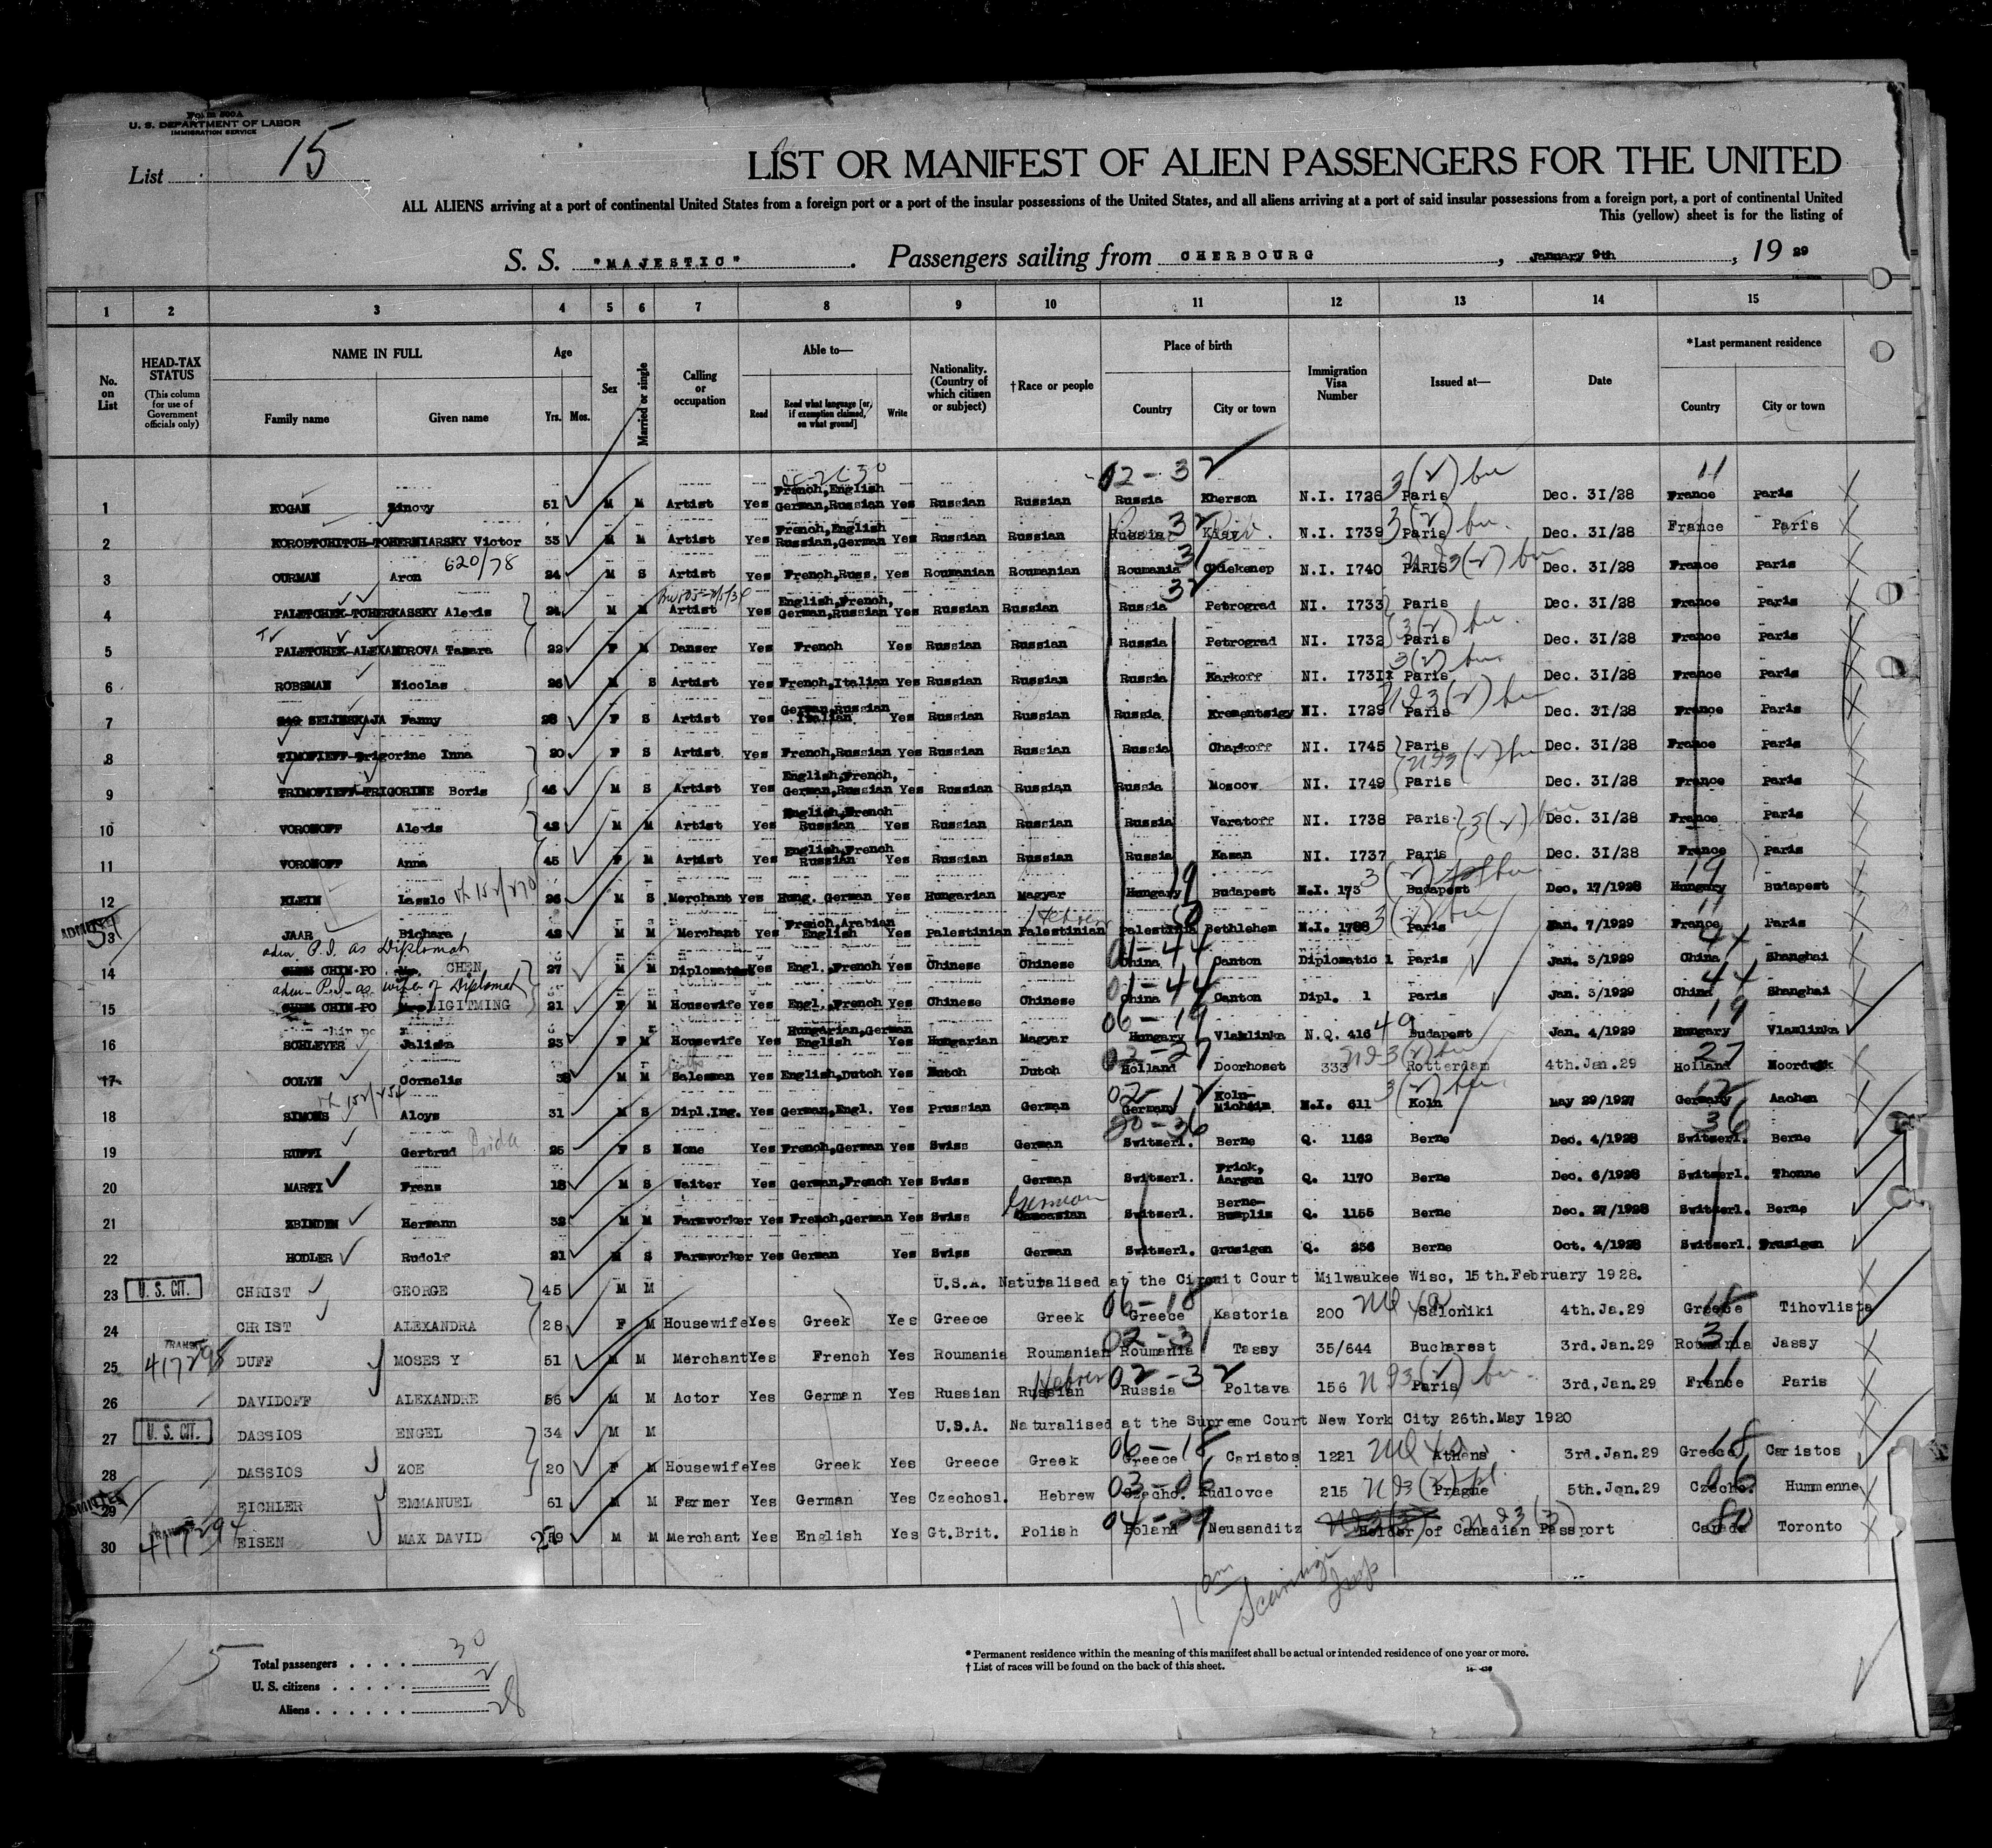 Form 500A
U. S. DEPARTMENT OF LABOR
IMMIGRATION SERVICE
List 15
LIST OR MANIFEST OF ALIEN PASSENGERS FOR THE UNITED
ALL ALIENS arriving at a port of continental United States from a foreign port or a port of the insular possessions of the United States, and all aliens arriving at a port of said insular possessions from a foreign port, a port of continental United
This (yellow) sheet is for the listing of
S. S. "MAJESTIC". Passengers sailing from CHERBOURG, January 9th, 19 29
1 2 3 4 5 6 7 8 9 10 11 12 13 14 15
No. on List
HEAD-TAX STATUS (This column for use of Government officials only)
NAME IN FULL Family name Given name
Age Yrs. Mos.
Sex
Married or single
Calling or occupation
Able to— Read Read what language [or, if exemption claimed, on what ground] Write
Nationality. (Country of which citizen or subject)
† Race or people
Place of birth Country City or town
Immigration Visa Number
Issued at—
Date
*Last permanent residence Country City or town
1 KOGAN Zinovy 51 M M Artist Yes French,English German,Russian Yes Russian Russian 02-32 Russia Kherson N.I. I726 3(2) Paris Dec. 3I/28 11 France Paris
2 KOROBTCHITCH-TCHERNIARSKY Victor 33 M M Artist Yes French,English Russian,German Yes Russian Russian Russia 32 Kiev N.I. I739 3(2) Paris Dec. 3I/28 France Paris
3 OURMAN Aron 620/78 24 M S Artist Yes French,Russ. Yes Roumanian Roumanian Roumania 31 N.I. I740 PARIS 3(2) Dec. 3I/28 France Paris
4 PALETCHEK-TCHERKASSKY Alexis 24 M M Artist Yes English,French, German,Russian Yes Russian Russian 32 Russia Petrograd NI. I733 Paris Dec. 3I/28 France Paris
5 PALETCHEK-ALEXANDROVA Tamara 22 F M Danser Yes French Yes Russian Russian Russia Petrograd NI. I732 3(2) Paris Dec. 3I/28 France Paris
6 ROBSMAN Nicolas 26 M S Artist Yes French,Italian Yes Russian Russian Russia Karkoff NI. I73I 3(2) Paris Dec. 3I/28 France Paris
7 SELINSKAJA Fanny 28 F S Artist Yes German,Russian Italian Yes Russian Russian Russia Krementsigy NI. I729 3(2) Paris Dec. 3I/28 France Paris
8 TIMOFIEFF-Trigorine Inna 20 F S Artist Yes French,Russian Yes Russian Russian Russia Charkoff NI. I745 Paris Dec. 3I/28 France Paris
9 TRIMOFIEFF-TRIGORINE Boris 46 M S Artist Yes English,French, German,Russian Yes Russian Russian Russia Moscow NI. I749 Paris Dec. 3I/28 France Paris
10 VORONOFF Alexis 42 M M Artist Yes English,French Russian Yes Russian Russian Russia Varatoff NI. I738 Paris 3(2) Dec. 3I/28 France Paris
11 VORONOFF Anna 45 F M Artist Yes English,French Russian Yes Russian Russian Russia Kasan NI. I737 Paris Dec. 3I/28 France Paris
12 KLEIN Laszlo 26 M S Merchant Yes Hung. German Yes Hungarian Magyar Hungary 19 Budapest N.I. 173 3(2) Budapest Dec. 17/1928 19 Hungary Budapest
ADMITTED
13 JAAR Bichara 42 M M Merchant Yes French,Arabian English Yes Palestinian Palestinian Hebrew Palestinia Bethlehem N.I. 1788 3(2) Paris Jan. 7/1929 11 France Paris
adm. P.I. as Diplomat
14 CHIN-PO CHEN 27 M M Diplomat Yes Engl.,French Yes Chinese Chinese 01-44 China Canton Diplomatic 1 Paris Jan. 3/1929 44 China Shanghai
adm P.I. as wife of Diplomat
15 CHIN-PO LIGITMING 21 F M Housewife Yes Engl.,French Yes Chinese Chinese 01-44 China Canton Dipl. 1 Paris Jan. 3/1929 44 China Shanghai
16 SCHLEYER Juliska 23 F M Housewife Yes Hungarian,German English Yes Hungarian Magyar 06-19 Hungary Vlamlinka N.Q. 416 49 Budapest Jan. 4/1929 19 Hungary Vlamlinka
17 COLYN Cornelis 38 M M Salesman Yes English,Dutch Yes Dutch Dutch 02-27 Holland Doorhoset 333 3(2) Rotterdam 4th.Jan.29 27 Holland Noordwyk
18 SIMONS Aloys 31 M S Dipl.Ing. Yes German,Engl. Yes Prussian German 02-12 Germany Koln- N.I. 611 3(2) Koln May 29/1927 12 Germany Aachen
19 RUFFI Gertrud Frida 25 F S None Yes French,German Yes Swiss German 20-36 Switzerl. Berne Q. 1162 Berne Dec. 4/1928 36 Switzerl. Berne
20 MARTI Franz 18 M S Waiter Yes German,French Yes Swiss German Switzerl. Frick, Aargon Q. 1170 Berne Dec. 6/1928 Switzerl. Thonne
21 ZBINDEN Hermann 32 M M Farmworker Yes French,German Yes Swiss German Switzerl. Berne- Bumplis Q. 1155 Berne Dec. 27/1928 Switzerl. Berne
22 HODLER Rudolf 21 M S Farmworker Yes German Yes Swiss German Switzerl. Grusigen Q. 256 Berne Oct. 4/1928 Switzerl. Frusigen
23 U.S. CIT. CHRIST GEORGE 45 M M U.S.A. Naturalised at the Circuit Court Milwaukee Wisc, 15th.February 1928.
24 CHRIST ALEXANDRA 28 F M Housewife Yes Greek Yes Greece Greek 06-18 Greece Kastoria 200 Saloniki 4th.Ja.29 18 Greece Tihovlista
25 TRANSIT 417295 DUFF MOSES Y 51 M M Merchant Yes French Yes Roumania Roumanian 02-31 Roumania Tassy 35/644 Bucharest 3rd.Jan.29 31 Roumania Jassy
26 DAVIDOFF ALEXANDRE 56 M M Actor Yes German Yes Russian Russian Hebrew 02-32 Russia Poltava 156 3(2) Paris 3rd,Jan.29 11 France Paris
27 U.S. CIT. DASSIOS ENGEL 34 M M U.S.A. Naturalised at the Supreme Court New York City 26th.May 1920
28 DASSIOS ZOE 20 F M Housewife Yes Greek Yes Greece Greek 06-18 Greece Caristos 1221 Athens 3rd.Jan.29 18 Greece Caristos
ADMITTED
29 EICHLER EMMANUEL 61 M M Farmer Yes German Yes Czechosl. Hebrew 03-06 Czecho. Kudlovce 215 3(2) Prague 5th.Jan.29 06 Czecho. Hummenne
30 TRANSIT 417294 EISEN MAX DAVID 29 M M Merchant Yes English Yes Gt.Brit. Polish 04-29 Poland Neusanditz Holder of Canadian Passport 3(3) 80 Canada Toronto
11 am
15
Total passengers . . . . 30
U. S. citizens . . . . . 2
Aliens . . . . . . 28
* Permanent residence within the meaning of this manifest shall be actual or intended residence of one year or more.
† List of races will be found on the back of this sheet.